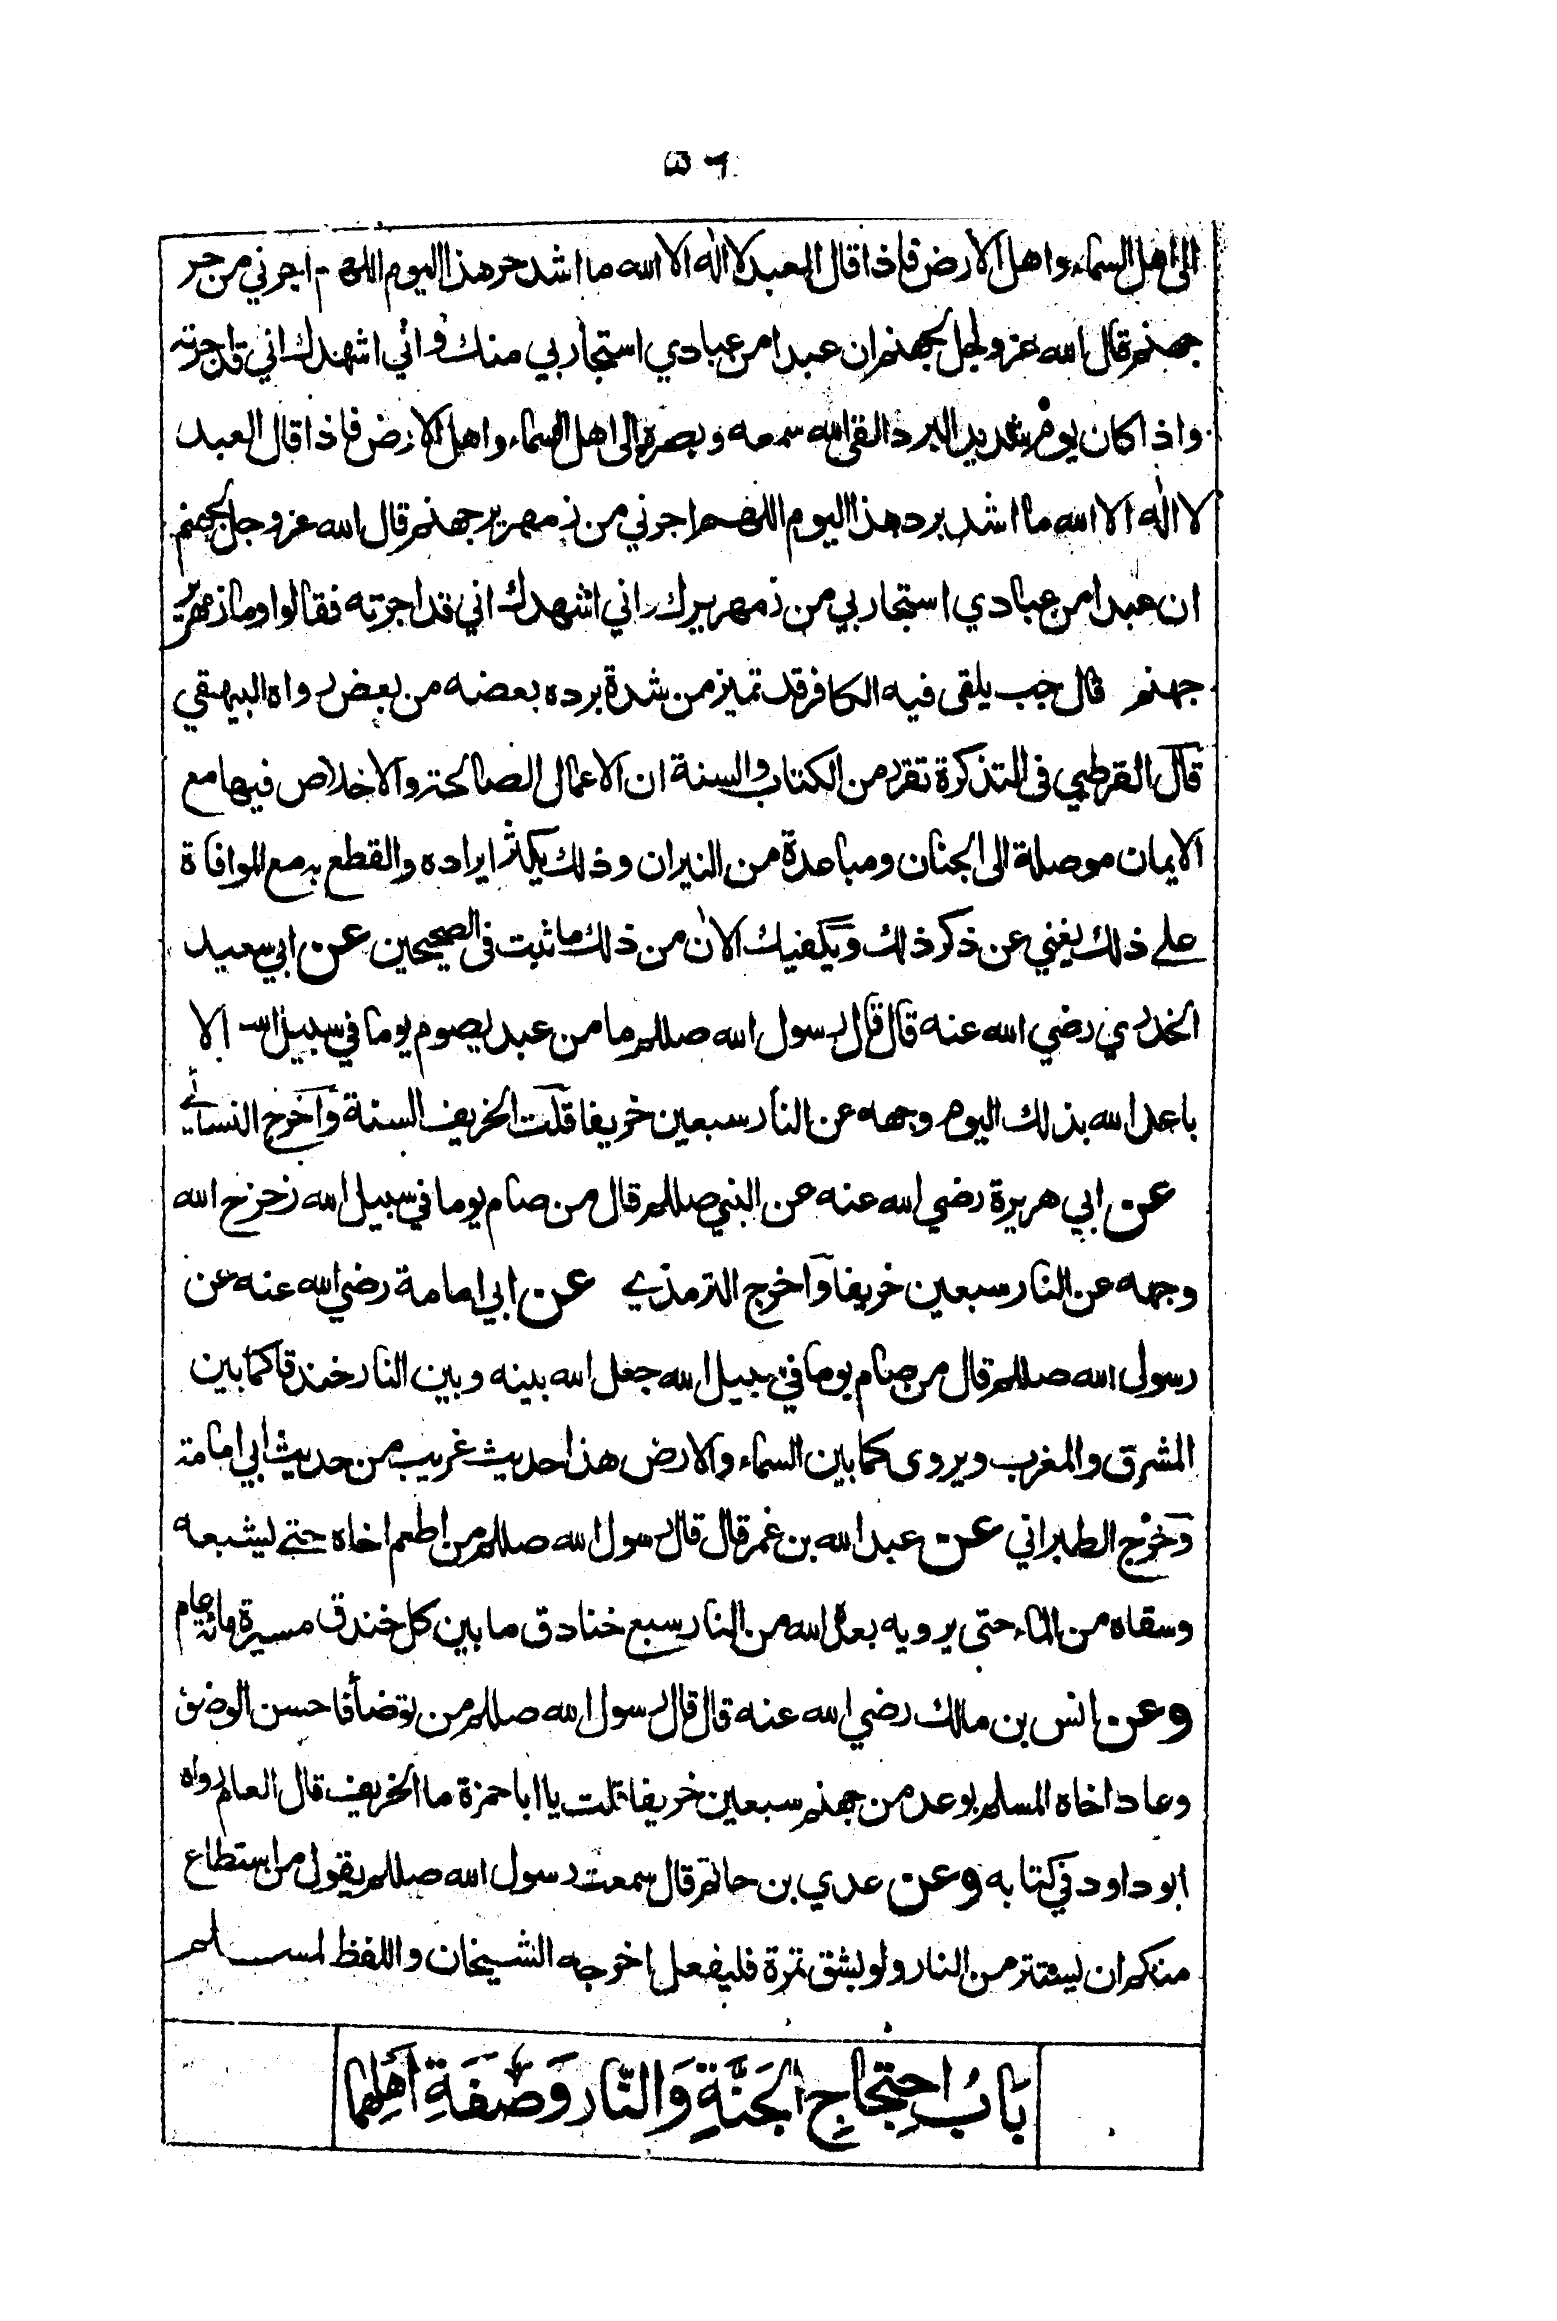 ٥٦
الى اهل السماء واهل الارض فاذا قال العبد لا اله الا الله ما اشد حر هذا اليوم اللهم اجرني من حر
جهنم قال الله عز وجل لجهنم ان عبدا من عبادي استجار بي منك واني اشهدك اني قد اجرته
واذا كان يوم شديد البرد القى الله سمعه وبصره الى اهل السماء واهل الارض فاذا قال العبد
لا اله الا الله ما اشد برد هذا اليوم اللهم اجرني من زمهرير جهنم قال الله عز وجل لجهنم
ان عبدا من عبادي استجار بي من زمهريرك اني اشهدك اني قد اجرته فقالوا وما زمهرير
جهنم قال جب يلقى فيه الكافر قد تميز من شدة برده بعضه من بعض رواه البيهقي
قال القرطبي في التذكرة تقرر من الكتاب والسنة ان الاعمال الصالحة والاخلاص فيها مع
الايمان موصلة الى الجنان ومباعدة من النيران وذلك يكثر ايراده والقطع به مع الموافاة
على ذلك يغني عن ذكر ذلك ويكفيك الان من ذلك ما ثبت في الصحيحين عن ابي سعيد
الخدري رضي الله عنه قال قال رسول الله صللم ما من عبد يصوم يوما في سبيل الله الا
باعد الله بذلك اليوم وجهه عن النار سبعين خريفا قلت الخريف السنة واخرج النسائي
عن ابي هريرة رضي الله عنه عن النبي صللم قال من صام يوما في سبيل الله زحزح الله
وجهه عن النار سبعين خريفا واخرج الترمذي عن ابي امامة رضي الله عنه عن
رسول الله صللم قال من صام يوما في سبيل الله جعل الله بينه وبين النار خندقا كما بين
المشرق والمغرب ويروى كما بين السماء والارض هذا حديث غريب من حديث ابي امامة
وخرج الطبراني عن عبد الله بن عمر قال قال رسول الله صللم من اطعم اخاه حتى يشبعه
وسقاه من الماء حتى يرويه بعده الله من النار سبع خنادق ما بين كل خندق مسيرة مائة عام
وعن انس بن مالك رضي الله عنه قال قال رسول الله صللم من توضأ فاحسن الوضوء
وعاد اخاه المسلم بوعد من جهنم سبعين خريفا قلت يا ابا حمزة ما الخريف قال العام رواه
ابو داود في كتابه وعن عدي بن حاتم قال سمعت رسول الله صللم يقول من استطاع
منكم ان يستتر من النار ولو بشق تمرة فليفعل اخرجه الشيخان واللفظ لمسلم
بَابُ احتِجَاجِ الجَنَّةِ وَالنَّارِ وَصِفَةِ أَهْلِهَا